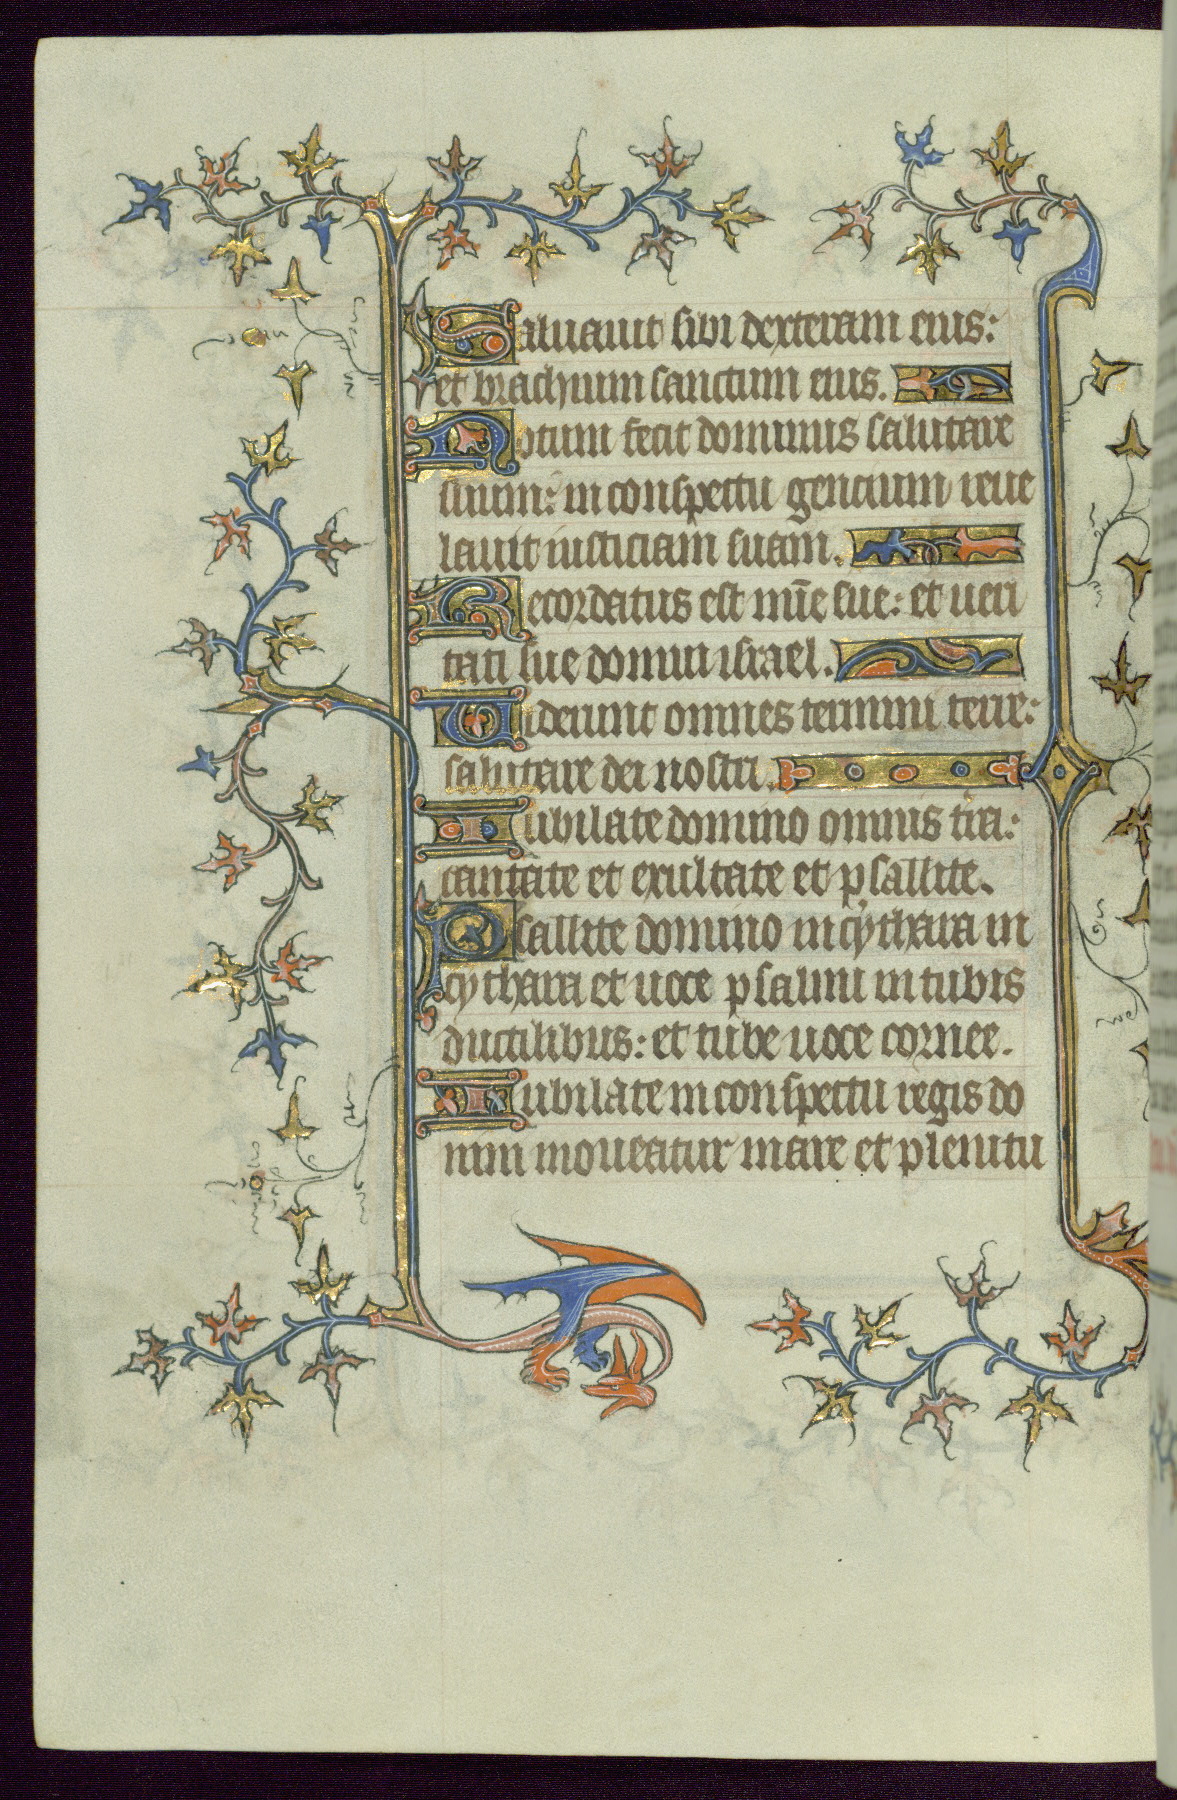 Saluauit sibi dexteram eius:
et brachium sanctum eius.
Notum fecit dominus salutare
suum: in conspectu gencium reue
lauit iusticiam suam.
Recordatus est mīe sue: et ueri
tati sue domui israel.
Uiderunt omnes termini terre:
salutare dei nostri.
Iubilate domino omnis tr̄a:
cantate et exultate et psallite.
Psallite domino in cythara in
cythara et uoce psalmi in tubis
ductilibus: et tube uoce cornee.
Iubilate in conspectu regis do
mini moueatur mare et plenitu